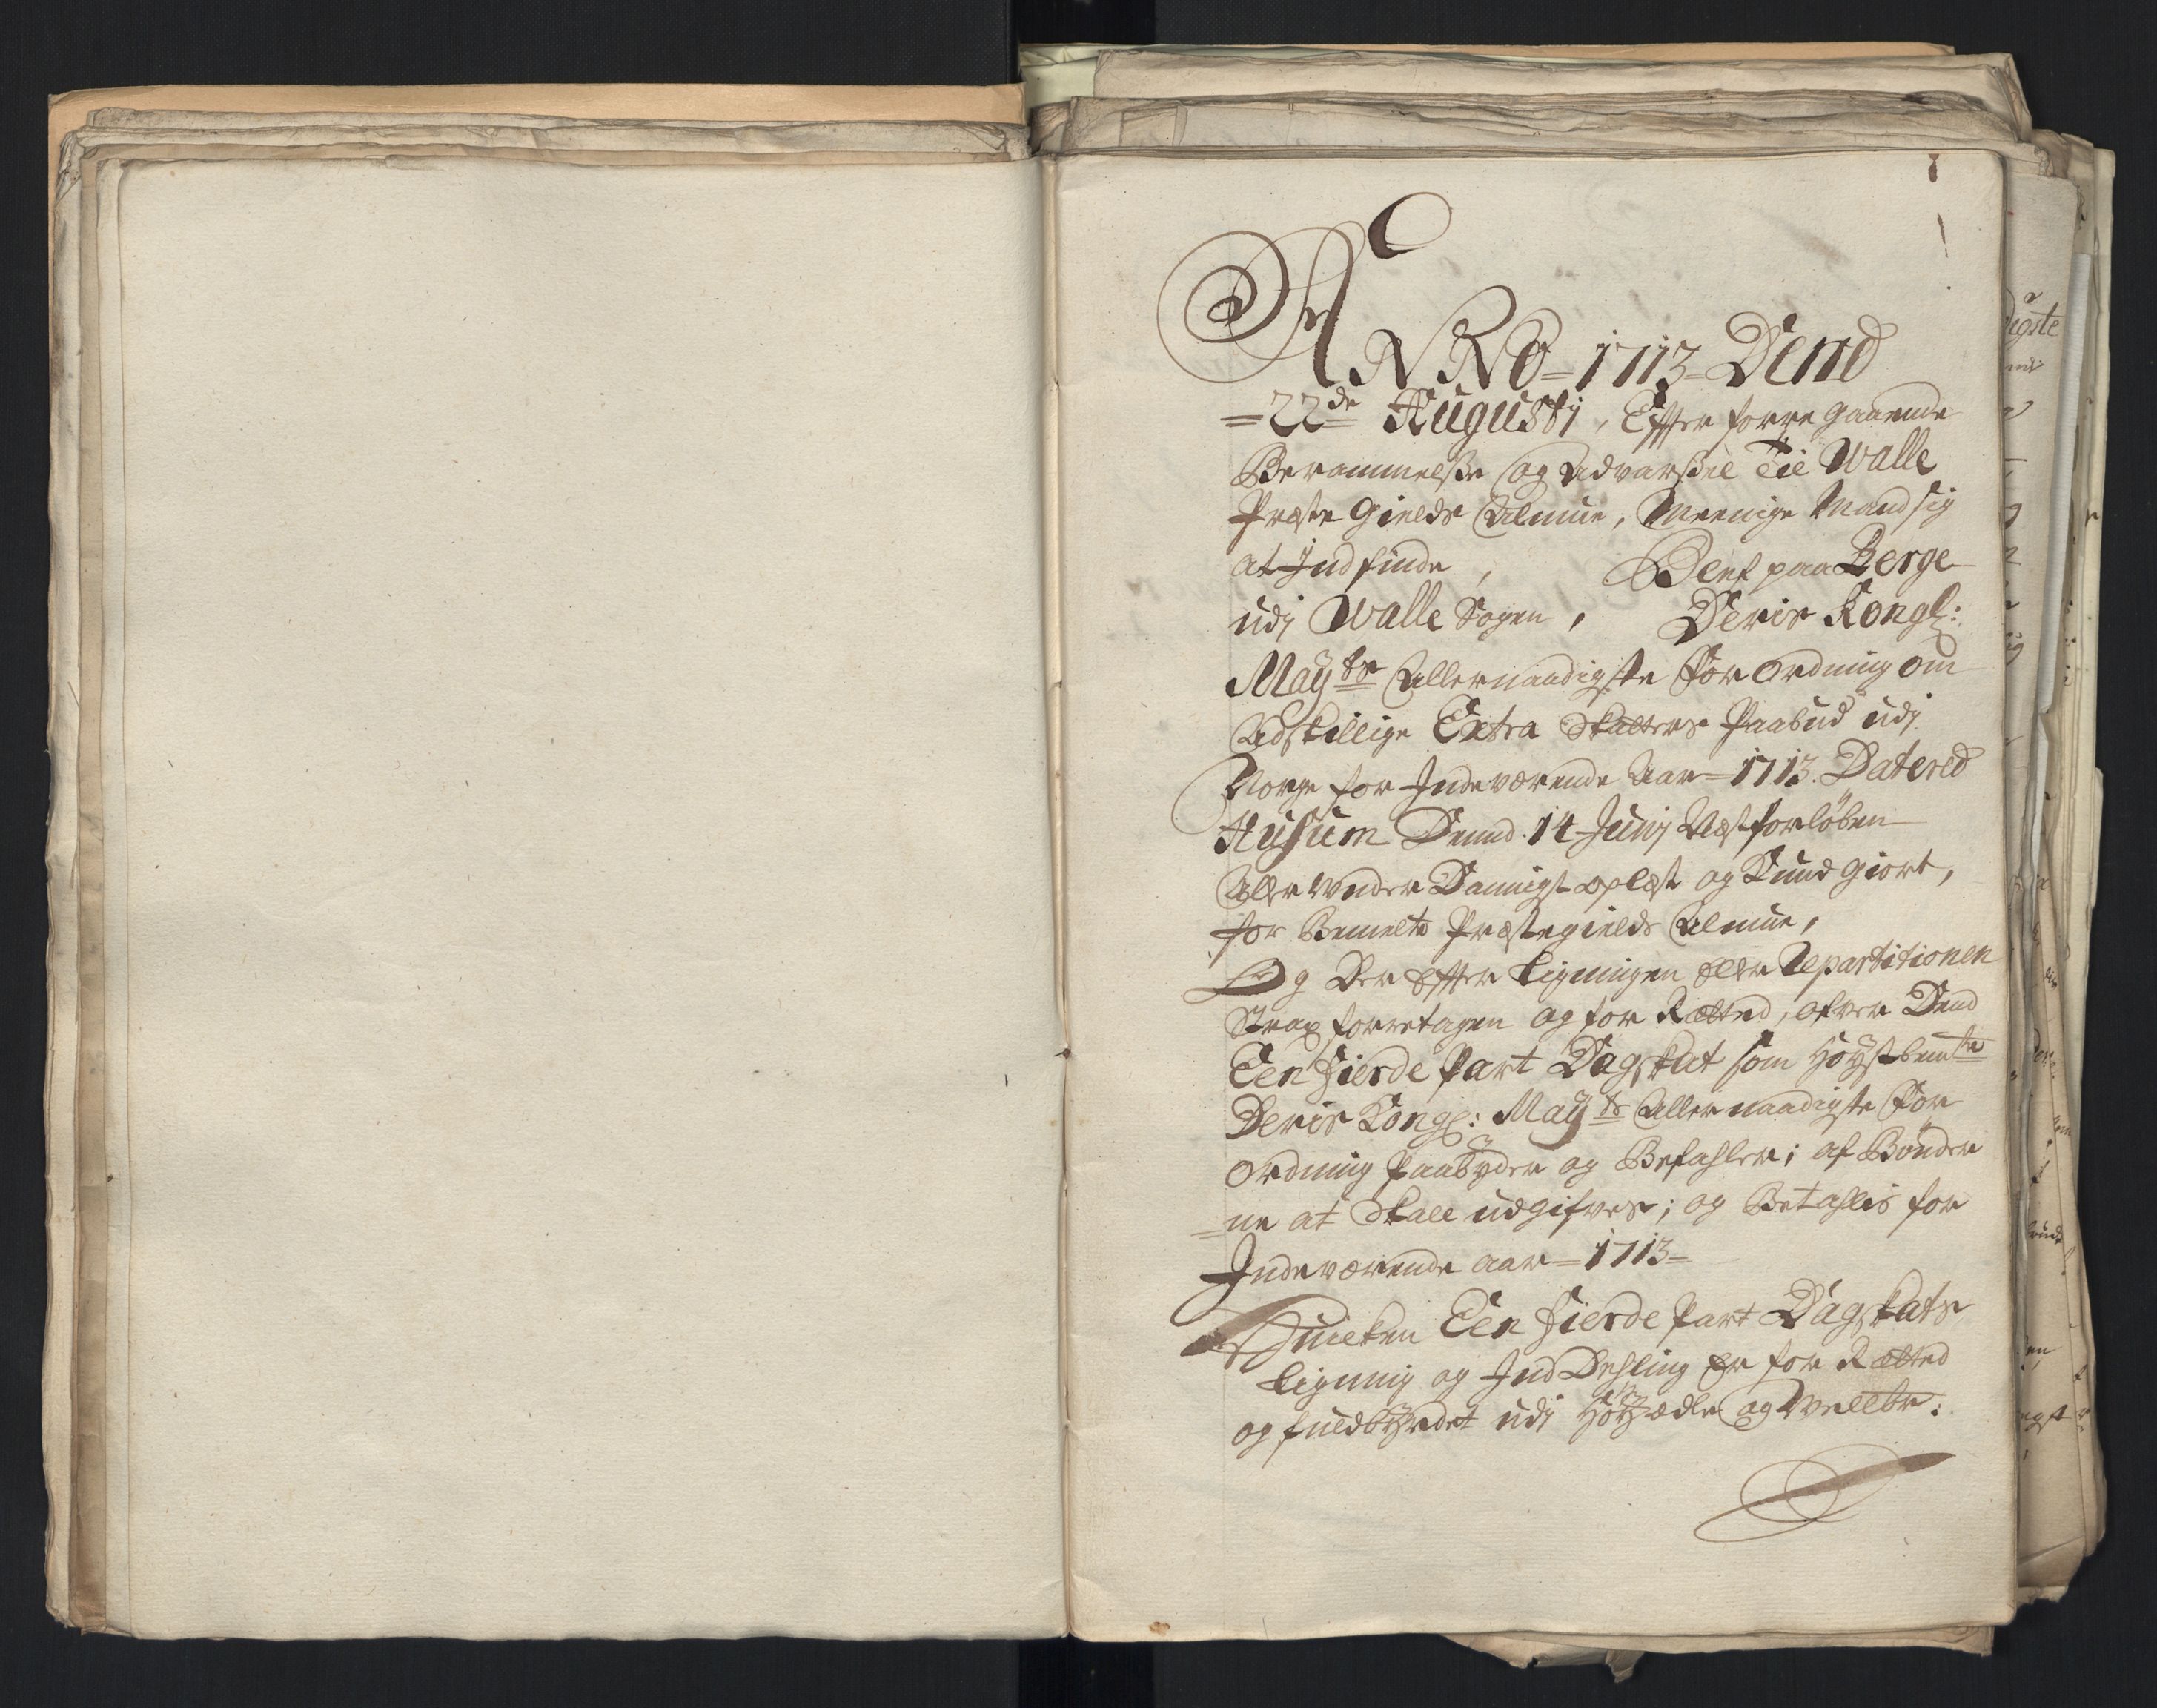 ANNO = 1713 = Dend
= 22de Augustj, Effter forregaaende
Berammelsse og Advarssel Til Walle
Præste Gields Almue, Meenige Mand sig
at Indfinde, Blef paa Berge
udj Walle Sogen, Deris Kongl:
Mayts Allernaadigste Forordning om
Adskillige Extra Skatters Paabud udj
Norge for Indeværende Aar = 1713. Datered
Husum Dennd. 14 Junj Næstforløben
Allerunder Dannigst oplæst og Kundgiort,
for Bemelte Præstegields Almue,
Og Der Effter Ligningen eller Repartitionen
Strax forretagen og forRætted, ofver Dend
Een Fierde Part Dagskat som Høystbemte
Deris Kongl: Mayts Aller naadigste For
ordning Paabyder og Befahler; af Bønder
=ne at Skall udgifves; og Betahlis for
Indeværende aar = 1713 =
Huilken Een Fierde Part Dagskats
Ligning og Ind Dehling Er forRætted
og fuldbyrdet udj Høyædle og Vellbr:
digste